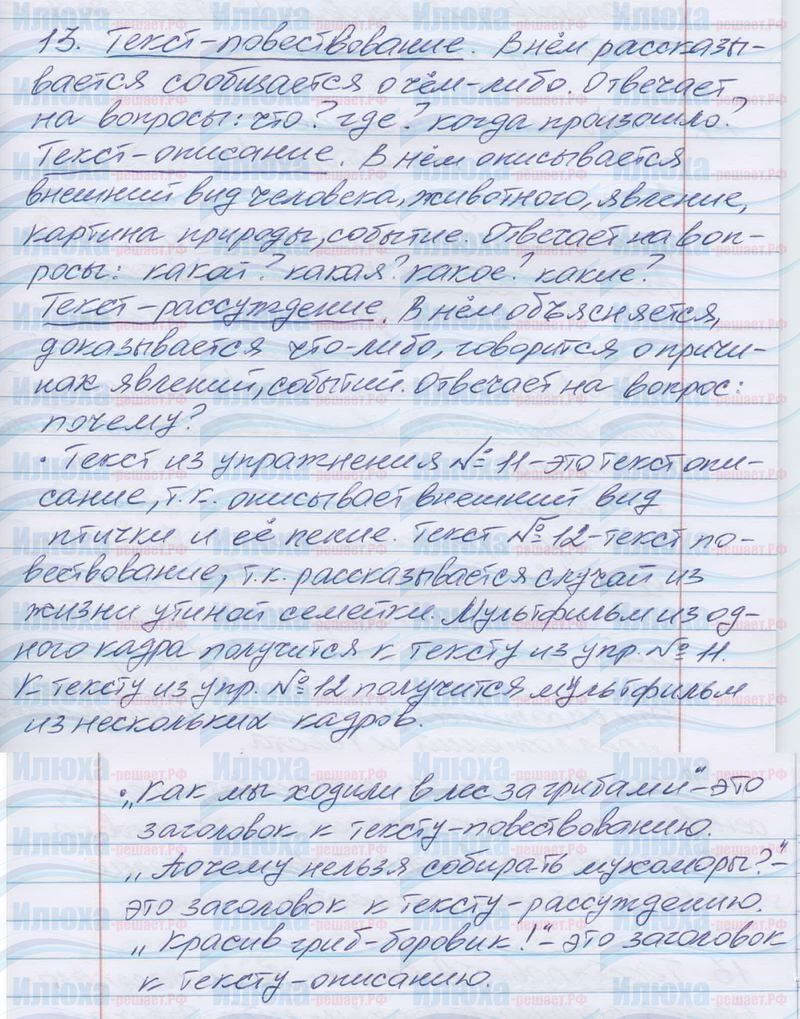 13. Текст-повествование. В нём рассказы-
вается сообщается о чём-либо. Отвечает
на вопросы: что? где? когда произошло?
Текст-описание. В нём описывается
внешний вид человека, животного, явление,
картина природы, событие. Отвечает на воп-
росы: какой? какая? какое? какие?
Текст-рассуждение. В нём объясняется,
доказывается что-либо, говорится о причи-
нах явлений, событий. Отвечает на вопрос:
почему?
• Текст из упражнения № 11-это текст опи-
сание, т.к. описывает внешний вид
птички и её пение. Текст № 12-текст по-
вествование, т.к. рассказывается случай из
жизни утиной семейки. Мультфильм из од-
ного кадра получится к тексту из упр. № 11.
К тексту из упр. № 12 получится мультфильм
из нескольких кадров.
• „Как мы ходили в лес за грибами"- это
заголовок к тексту-повествованию.
„Почему нельзя собирать мухоморы?"-
это заголовок к тексту-рассуждению.
„Красив гриб-боровик!"- это заголовок
к тексту-описанию.